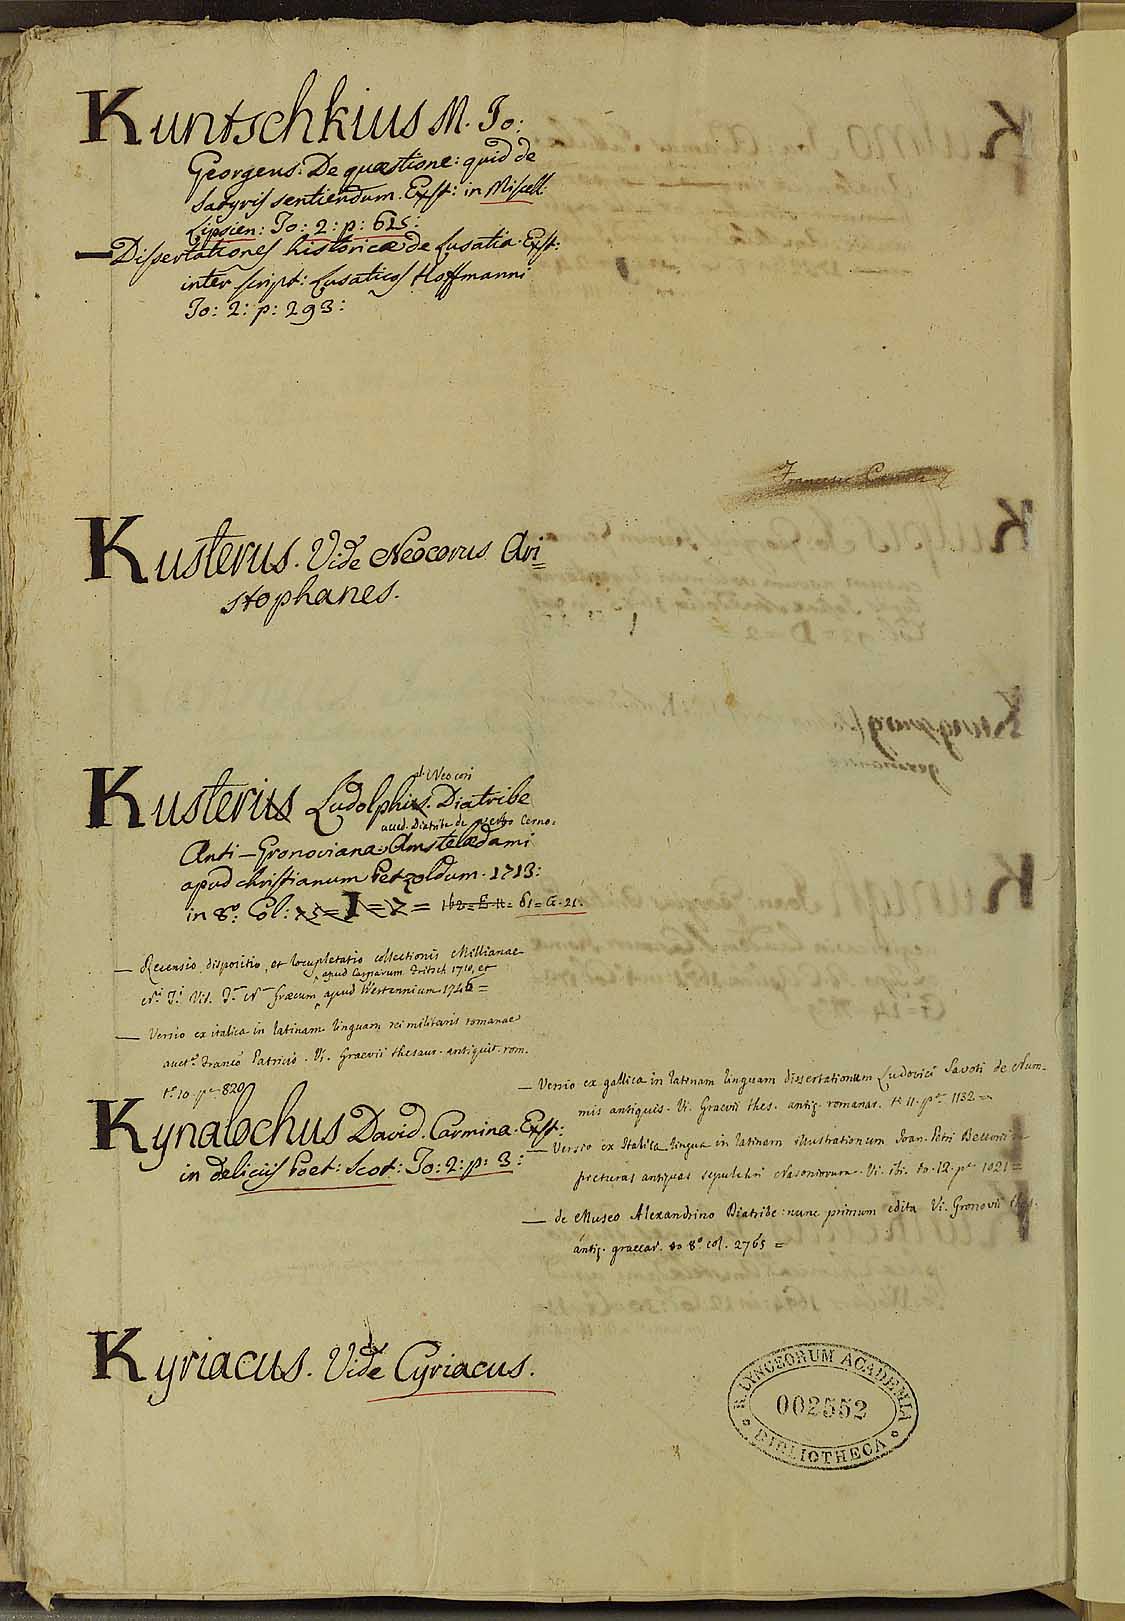 Kuntschkius M. Io:
Georgeus: De quæstione: quid de
Satyris sentiendum. Exst: in Miscell:
Lipsien: To: 2: p: 615:
— Dissertationes historicæ de Lusatia. Exst:
inter script: Lusaticos Hoffmanni
To: 2: p: 293:
Francesco
Kusterus. Vide Neocorus Ari=
stophanes.
al. Neocori
Kusterius Ludolphus. Diatribe
aliud. Diatribe de verbo Cerno.
Anti-Gronoviana. Amstelædami
apud christianum Petzoldum. 1713:
in 8º: Col: 75 = I = 7 = 162 = E. 11 = 61 = G. 21.
— Recensio, dispositio, et locupletatio collectionis Millianae
apud Casparum Fritsch 1710, et
Græcum apud Westennium 1746 =
— Versio ex italica in latinam linguam rei militaris romanae
auct.e Franco Patricio. Vi. Graevii thesaur. antiquit. rom.
t.º 10. p.e 820
— Versio ex gallica in latinam linguam dissertationum Ludovici Savoti de Num-
mis antiquis. Vi. Graevii thes. antiq. romanar. t. 11. p.e 1132 =
— Versio ex Italica lingua in latinam illustrationum Joan. Petri Bellorii in
picturas antiquas sepulchri Nasoniorum. Vi. ibi. to. 12. p.e 1021 =
— de Museo Alexandrino Diatribe: nunc primum edita Vi. Gronovii thes.
antiq. graecar. to 8º col. 2765 =
Kynalochus David. Carmina. Exst:
in deliciis Poet: Scot: To: 2: p: 3:
Kyriacus. Vide Cyriacus.
R. LYNCEORUM ACADEMIA
002552
BIBLIOTHECA